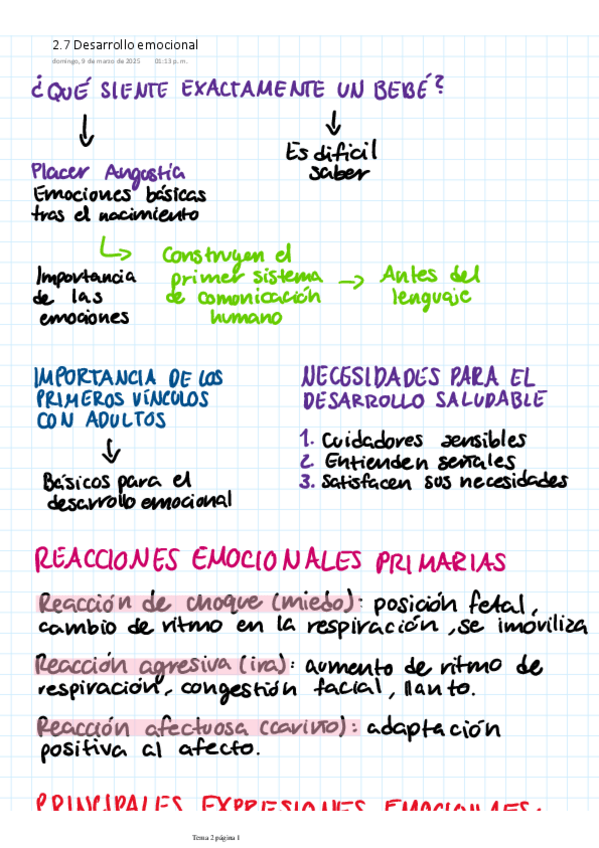 2.7 Desarrollo emocional
domingo, 9 de marzo de 2025 01:13 p. m.
¿QUÉ SIENTE EXACTAMENTE UN BEBÉ?
Es dificil
saber
Placer Angustia
Emociones básicas
tras el nacimiento
Importancia
de las
emociones
Construyen el
primer sistema
de comonicación
humano
Antes del
lenguaje
IMPORTANCIA DE LOS
PRIMEROS VÍNCULOS
CON ADULTOS
Básicos para el
desarrollo emocional
NECESIDADES PARA EL
DESARROLLO SALUDABLE
1. Cuidadores sensibles
2. Entienden señales
3. Satisfacen sus necesidades
REACCIONES EMOCIONALES PRIMARIAS
Reacción de choque (miedo): posición fetal,
cambio de ritmo en la respiración, se imoviliza
Reacción agresiva (ira): aumento de ritmo de
respiración, congestión facial, llanto.
Reacción afectuosa (cariño): adaptación
positiva al afecto.
PRINCIPALES EXPRESIONES EMOCIONALES:
Tema 2 página 1